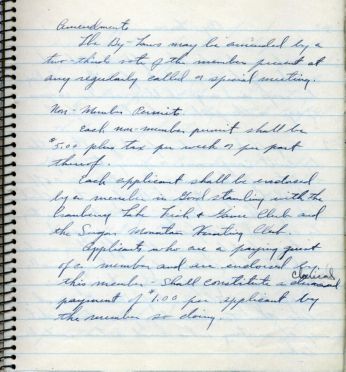 Amendments
The By-Laws may be amended by a
two-thirds vote of the members present at
any regularly called or special meeting.
Non-Member Permits.
Each non-member permit shall be
$5.00 plus tax per week or per part
thereof.
Each applicant shall be endorsed
by a member in Good standing with the
Cranberry Lake Fish & Game Club and
the Sugar Mountain Hunting Club.
Applicants who are a paying guest
of a member and are endorsed by
this member - shall constitute a clerical
payment of $1.00 per applicant by
the member so doing.